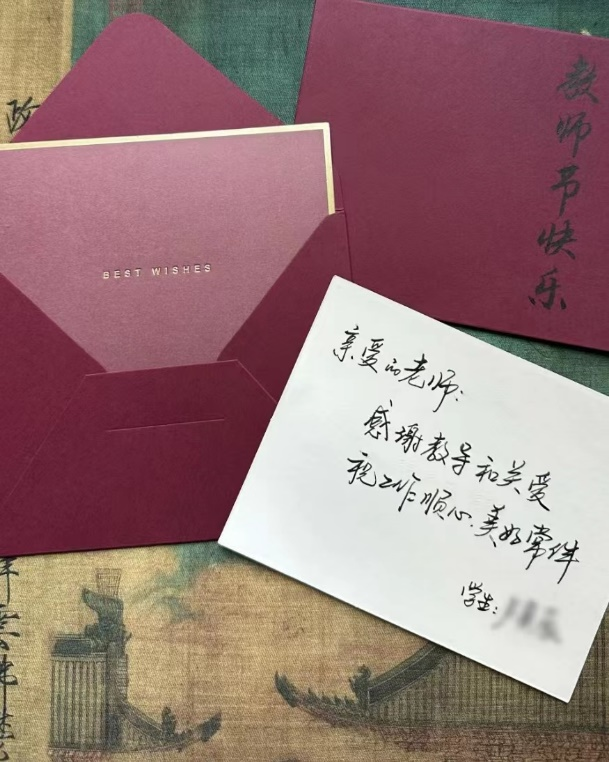 教师节快乐
BEST WISHES
亲爱的老师:
感谢教导和关爱
祝工作顺心、美好常伴
学生: